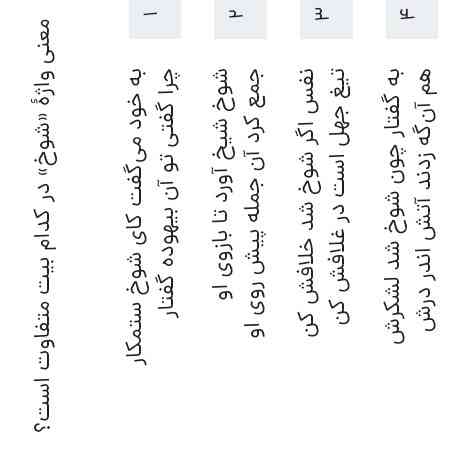 معنی واژهٔ «شوخ» در کدام بیت متفاوت است؟
۱
به خود می‌گفت کای شوخ ستمکار
چرا گفتی تو آن بیهوده گفتار
۲
شوخ شیخ آورد تا بازوی او
جمع کرد آن جمله پیش روی او
۳
نفس اگر شوخ شد خلافش کن
تیغ جهل است در غلافش کن
۴
به گفتار چون شوخ شد لشکرش
هم آن‌گه زدند آتش اندر درش